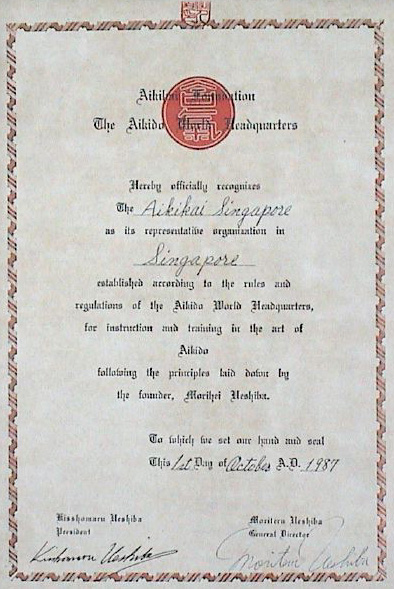 Aikikai Foundation
The Aikido World Headquarters
Hereby officially recognizes
The Aikikai Singapore
as its representative organization in
Singapore
established according to the rules and
regulations of the Aikido World Headquarters,
for instruction and training in the art of
Aikido
following the principles laid down by
the founder, Morihei Ueshiba.
To which we set our hand and seal
This 1st Day of October A.D. 1987
Kisshomaru Ueshiba
President
Kisshomaru Ueshiba
Moriteru Ueshiba
General Director
Moriteru Ueshiba